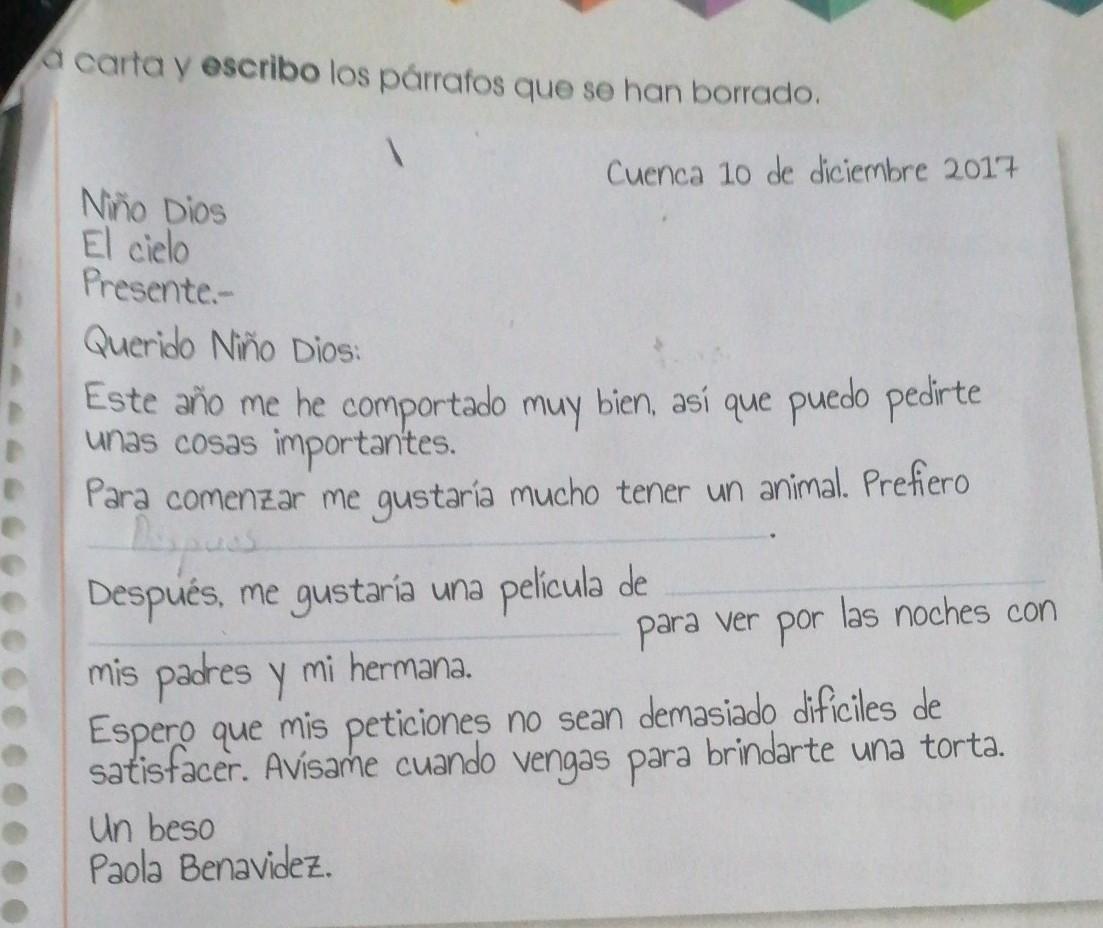 a carta y escribo los párrafos que se han borrado.
Cuenca 10 de diciembre 2017
Niño Dios
El cielo
Presente.-
Querido Niño Dios:
Este año me he comportado muy bien, así que puedo pedirte
unas cosas importantes.
Para comenzar me gustaría mucho tener un animal. Prefiero
Despues .
Después, me gustaría una película de
para ver por las noches con
mis padres y mi hermana.
Espero que mis peticiones no sean demasiado difíciles de
satisfacer. Avísame cuando vengas para brindarte una torta.
Un beso
Paola Benavidez.